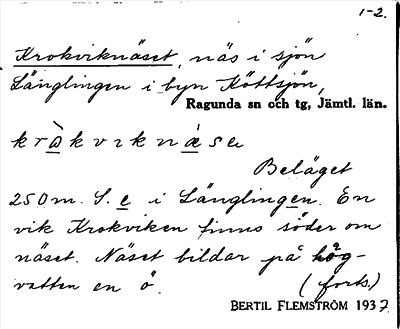 1-2.
Krokviknäset, näs i sjön
Länglingen i byn Köttsjön,
Ragunda sn och tg, Jämtl. län.
Beläget
250 m. S. e i Länglingen. En
vik Krokviken finns söder om
näset. Näset bildar på hög-
vatten en ö. (forts.)
BERTIL FLEMSTRÖM 1937